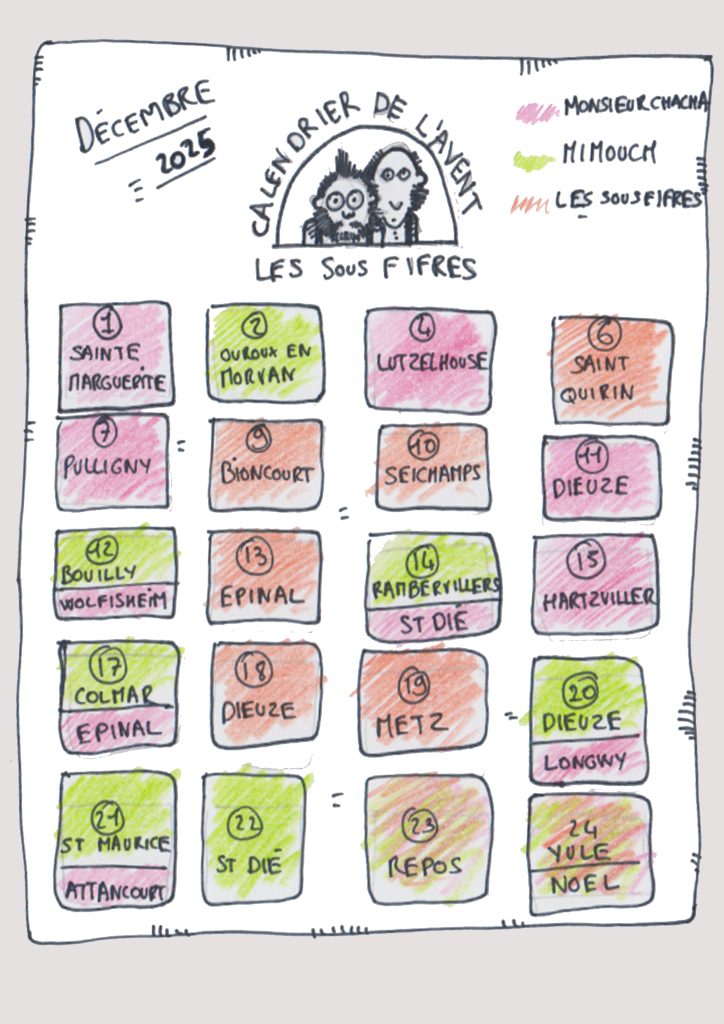 DÉCEMBRE
2025
CALENDRIER DE L'AVENT
LES SOUS FIFRES
MONSIEUR CHACHA
MIMOUCH
LES SOUSFIFRES
1
SAINTE
MARGUERITE
2
OUROUX EN
MORVAN
4
LUTZELHOUSE
6
SAINT
QUIRIN
7
PULLIGNY
9
BIONCOURT
10
SEICHAMPS
11
DIEUZE
12
BOUILLY
WOLFISHEIM
13
EPINAL
14
RAMBERVILLERS
ST DIÉ
15
HARTZVILLER
17
COLMAR
EPINAL
18
DIEUZE
19
METZ
20
DIEUZE
LONGWY
21
ST MAURICE
ATTANCOURT
22
ST DIÉ
23
REPOS
24
YULE
NOEL